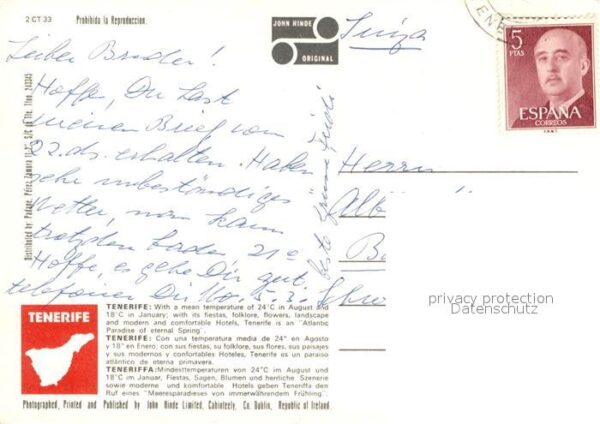 2 CT 33
Prohibida la Reproduccion.
JOHN HINDE
ORIGINAL
Suiza
5
PTAS
ESPAÑA
CORREOS
Lieber Bruder!
Hoffe, Du hast
meinen Brief vom
22. ds. erhalten. Haben
sehr unbeständiges
Wetter, man kann
trotzdem baden 21°
Hoffe, es gehe Dir gut.
telefoniere Dir 5.3.
beste Grüsse
Herrn
Alb
B
privacy protection
Datenschutz
TENERIFE
TENERIFE: With a mean temperature of 24°C in August and
18°C in January; with its fiestas, folklore, flowers, landscape
and modern and comfortable Hotels, Tenerife is an "Atlantic
Paradise of eternal Spring".
TENERIFE: Con una temperatura media de 24° en Agosto
y 18° en Enero; con sus fiestas, su folklore, sus flores, sus paisajes
y sus modernos y confortables Hoteles, Tenerife es un paraiso
atlántico de eterna primavera.
TENERIFFA: Mindesttemperaturen von 24°C im August und
18°C im Januar, Fiestas, Sagen, Blumen und herrliche Szenerie
sowie moderne und komfortable Hotels geben Teneriffa den
Ruf eines "Maeresparadieses von immerwährendem Frühling".
Photographed, Printed and Published by John Hinde Limited, Cabinteely, Co. Dublin, Republic of Ireland